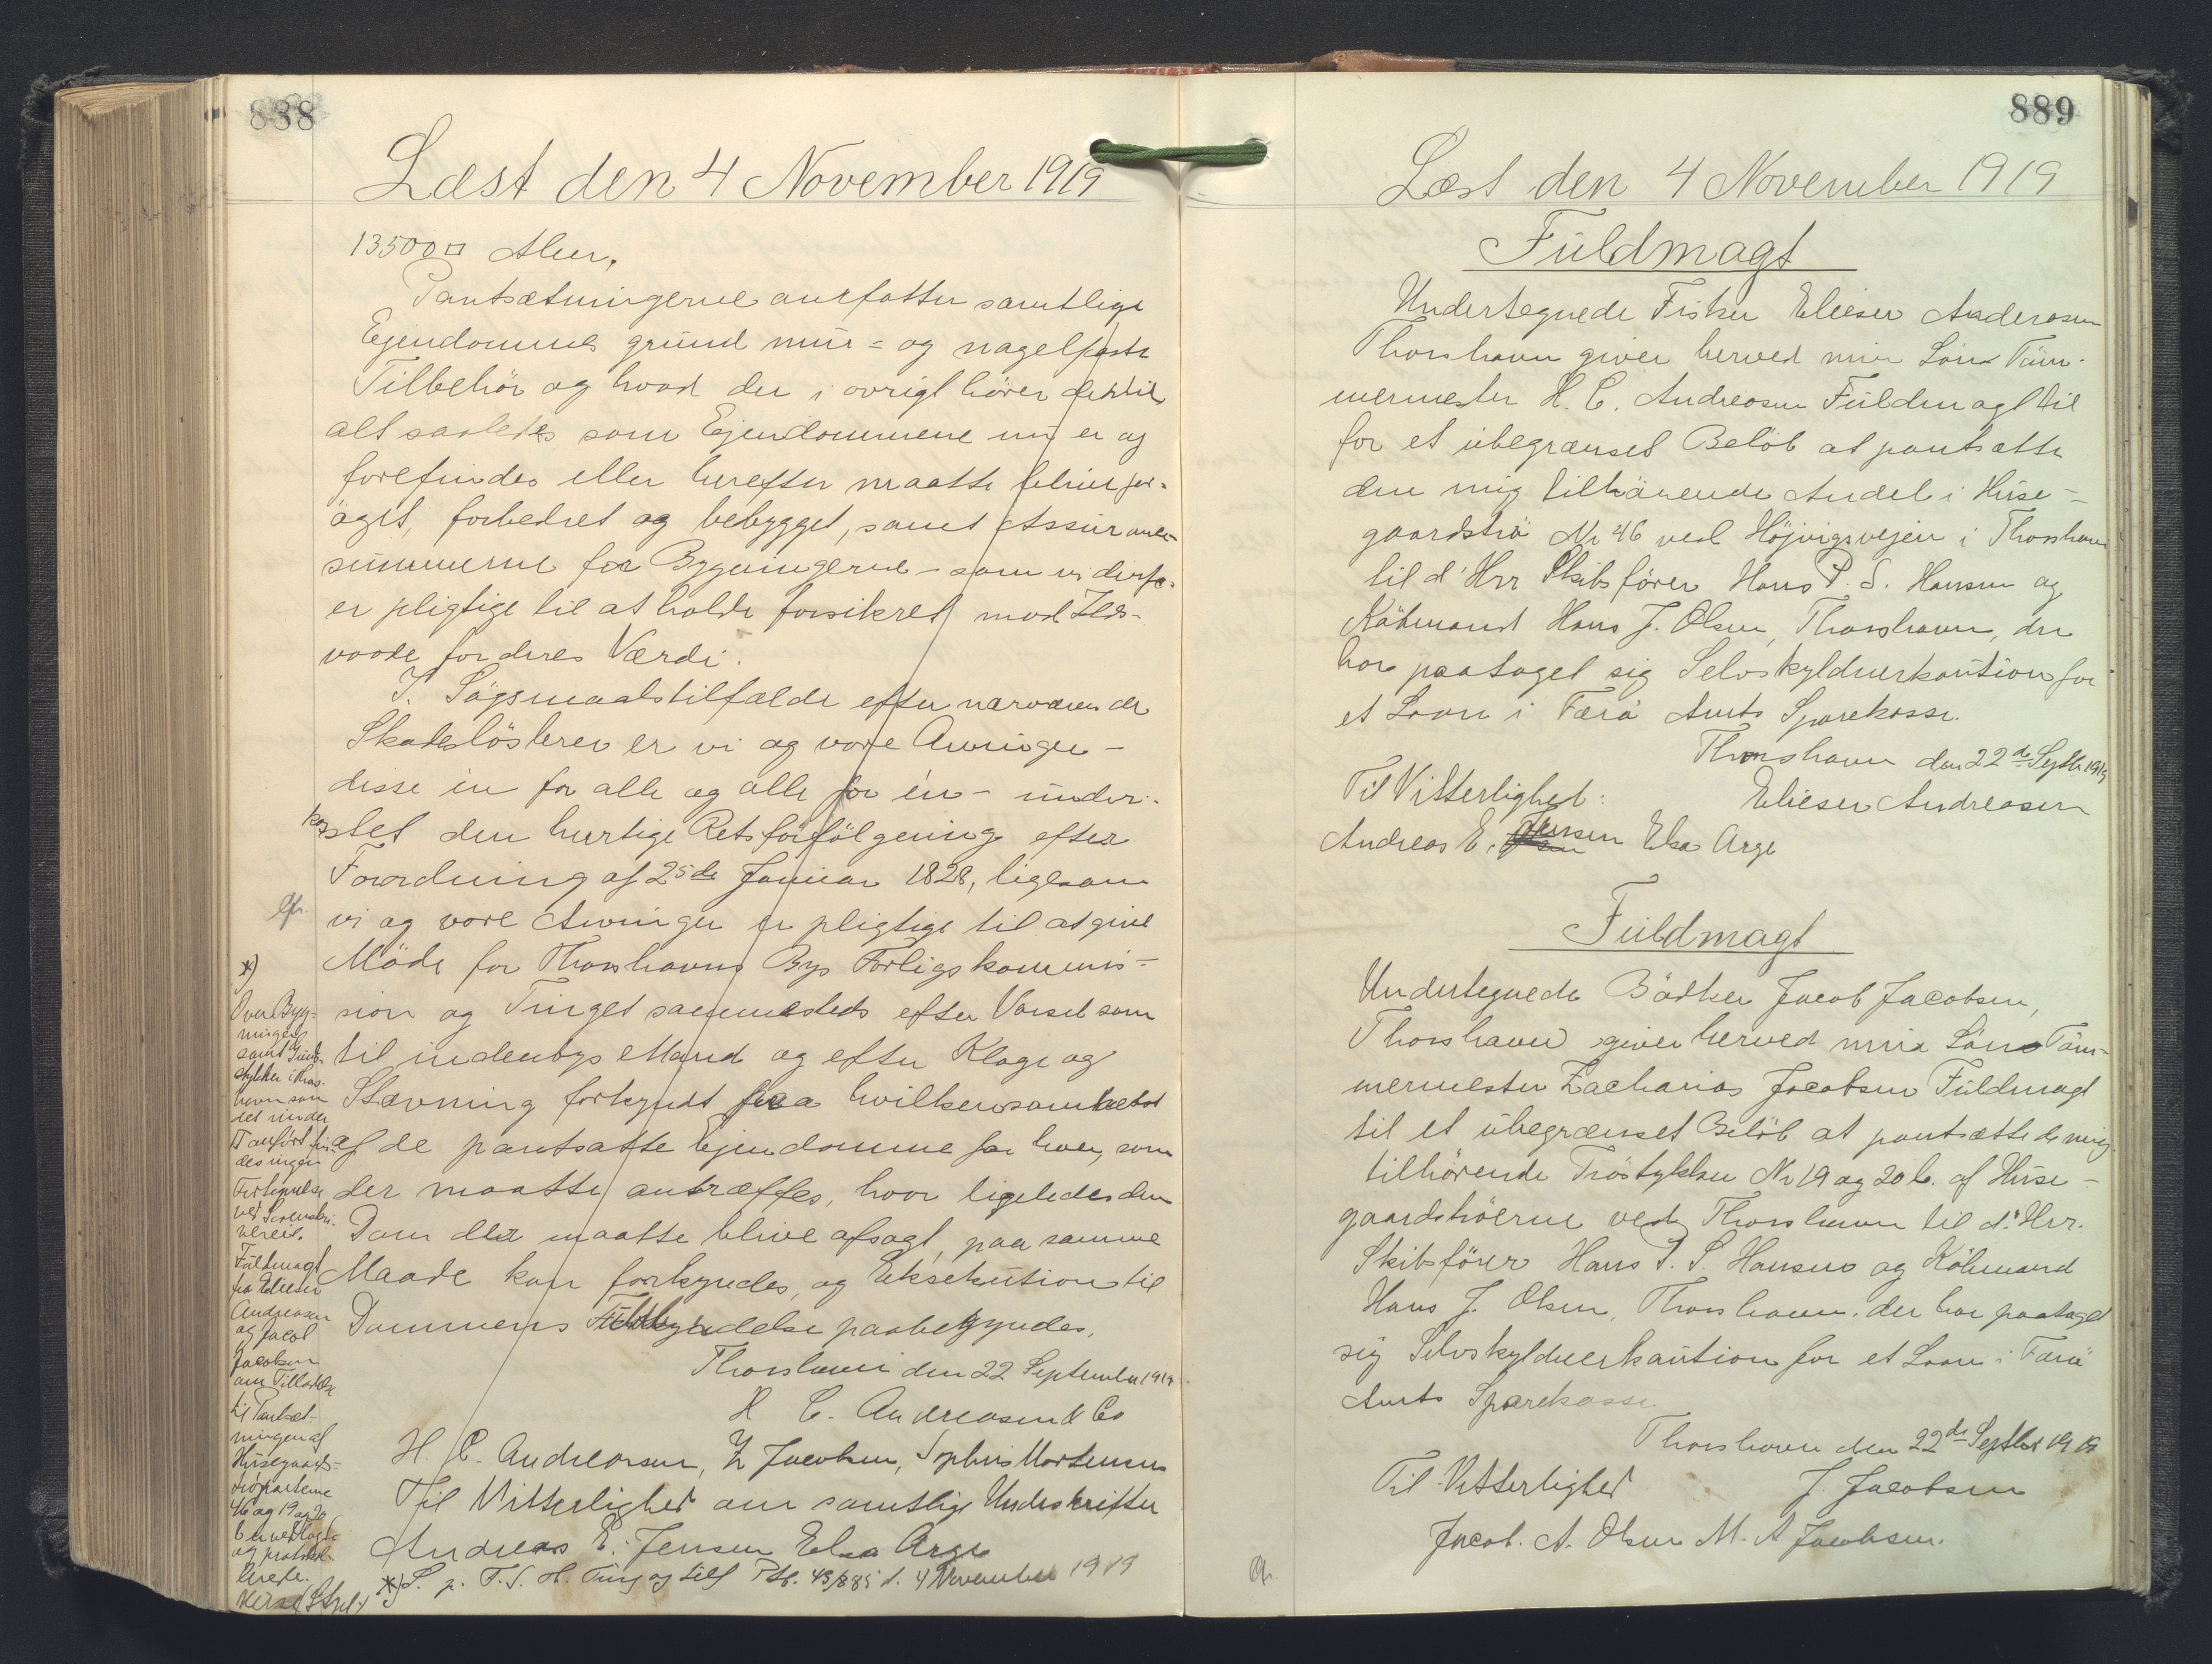 888
Læst den 4 November 1919
13500□ Alen.
Pantsætningerne omfatter samtlige
Ejendommes grund mur= og nagelfaste
Tilbehör og hvad der i övrigt hörer dertil
alt saaledes som Ejendommene nu er og
forefindes eller herefter maatte blive for-
öget, forbedret og bebygget, samt Assurance-
summerne for Bygningerne - som vi derfor
er pligtige til at holde forsikret mod Ilds-
vaade for deres Værdi.
I Sögsmaalstilfælde efter nærværende
Skadeslösbrev er vi og vore Arvinger -
disse en for alle og alle for én - under-
kastet den hurtige Retsforfölgning efter
Forordning af 25de Januar 1828, ligesom
vi og vore Arvinger er pligtige til at give
Möde for Thorshavns Bys Forligskommis-
sion og Tinget sammesteds efter Varsel som
til indenbys Mand og efter Klage og
Stævning forkyndt paa hvilkensomhelst
af de pantsatte Ejendomme for hver, som
der maatte antræffes, hvor ligeledes den
Dom der maatte blive afsagt, paa samme
Maade kan forkyndes, og Eksekution til
Dommens Fuldbyrdelse paabegyndes.
Thorshavn den 22 September 1919
H C. Andreasen & Co
H. C. Andreasen, Z Jacobsen, Sophus Mortensen
Til Vitterlighed om samtlige Underskrifter
Andreas E. Jensen Elsa Arge
*) L. p. F. S. O. Ting og till Ptb. 43/885 d. 4 November 1919
Cfr.
*)
Over Byg-
ningen
samt Grund-
stykker i Thors-
havn som
det under
II anfört fin-
des ingen
Fæstepulse
ved Sorenskri-
veriet.
Fuldmagt
fra Elieser
Andreasen
og Jacob
Jacobsen
om Tilladelse
til Pantsæt-
ningen af
Husegaards-
tröparterne
46 og 19 og 20
b er vedlagt
og protokol-
lerede.
889
Læst den 4 November 1919
Fuldmagt
Undertegnede Fisker Elieser Andreasen
Thorshavn giver herved min Sön Töm-
mermester H. C. Andreasen Fuldmagt til
for et ubegrænset Belöb at pantsætte
den mig tilhörende Andel i Huse-
gaardströ Nr 46 ved Höjvigsvejen i Thorshavn
til d'Hrr Skibsförer Hans P. S. Hansen og
Köbmand Hans J. Olsen, Thorshavn, der
har paataget sig Selvskyldnerkaution for
et Laan i Færö Amts Sparekasse.
Thorshavn den 22de Septbr 1919
Til Vitterlighed: Elieser Andreasen
Andreas E. Jensen Elsa Arge
Fuldmagt
Undertegnede Bödker Jacob Jacobsen,
Thorshavn giver herved min Sön Töm-
mermester Zacharias Jacobsen Fuldmagt
til et ubegrænset Belöb at pantsætte de mig
tilhörende Tröstykker Nr 19 og 20 b. af Huse-
gaardströerne ved Thorshavn til d'Hrr.
Skibsförer Hans P. S. Hansen og Köbmand
Hans J. Olsen, Thorshavn, der har paataget
sig Selvskyldnerkaution for et Laan i Færö
Amts Sparekasse.
Thorshavn den 22de Septbr 1919
Til Vitterlighed J. Jacobsen
Jacob. A. Olsen M. A Jacobsen.
Cfr.